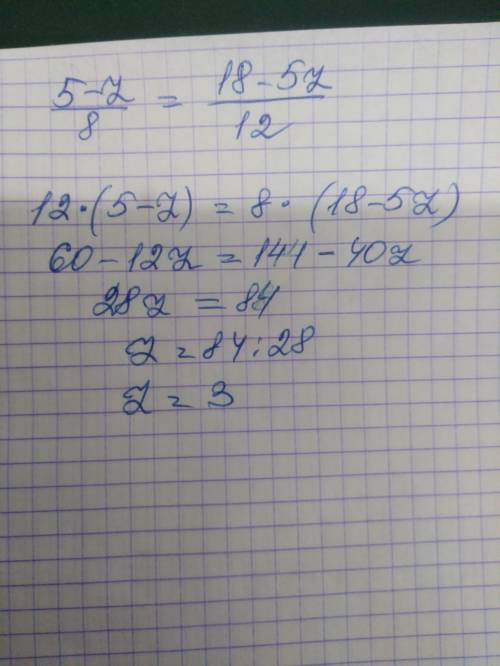 5-z/8 = 18-5z/12
12·(5-z) = 8·(18-5z)
60-12z = 144-40z
28z = 84
z = 84:28
z = 3